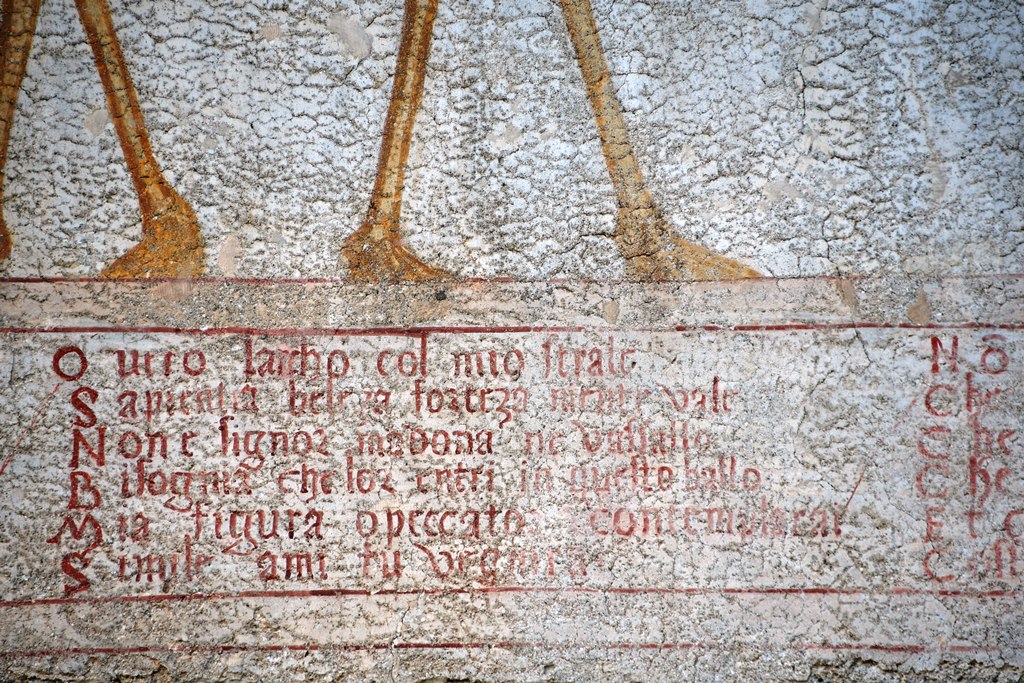 Ouero larcho col mio strale Nō
Sapientia beleza forteza niente vale Che
Non e signor madona ne vassallo Che
Bisogna che lor entri in questo ballo Che
Mia figura o peccator contemplarai Et
Simile a mi tu vegnirai